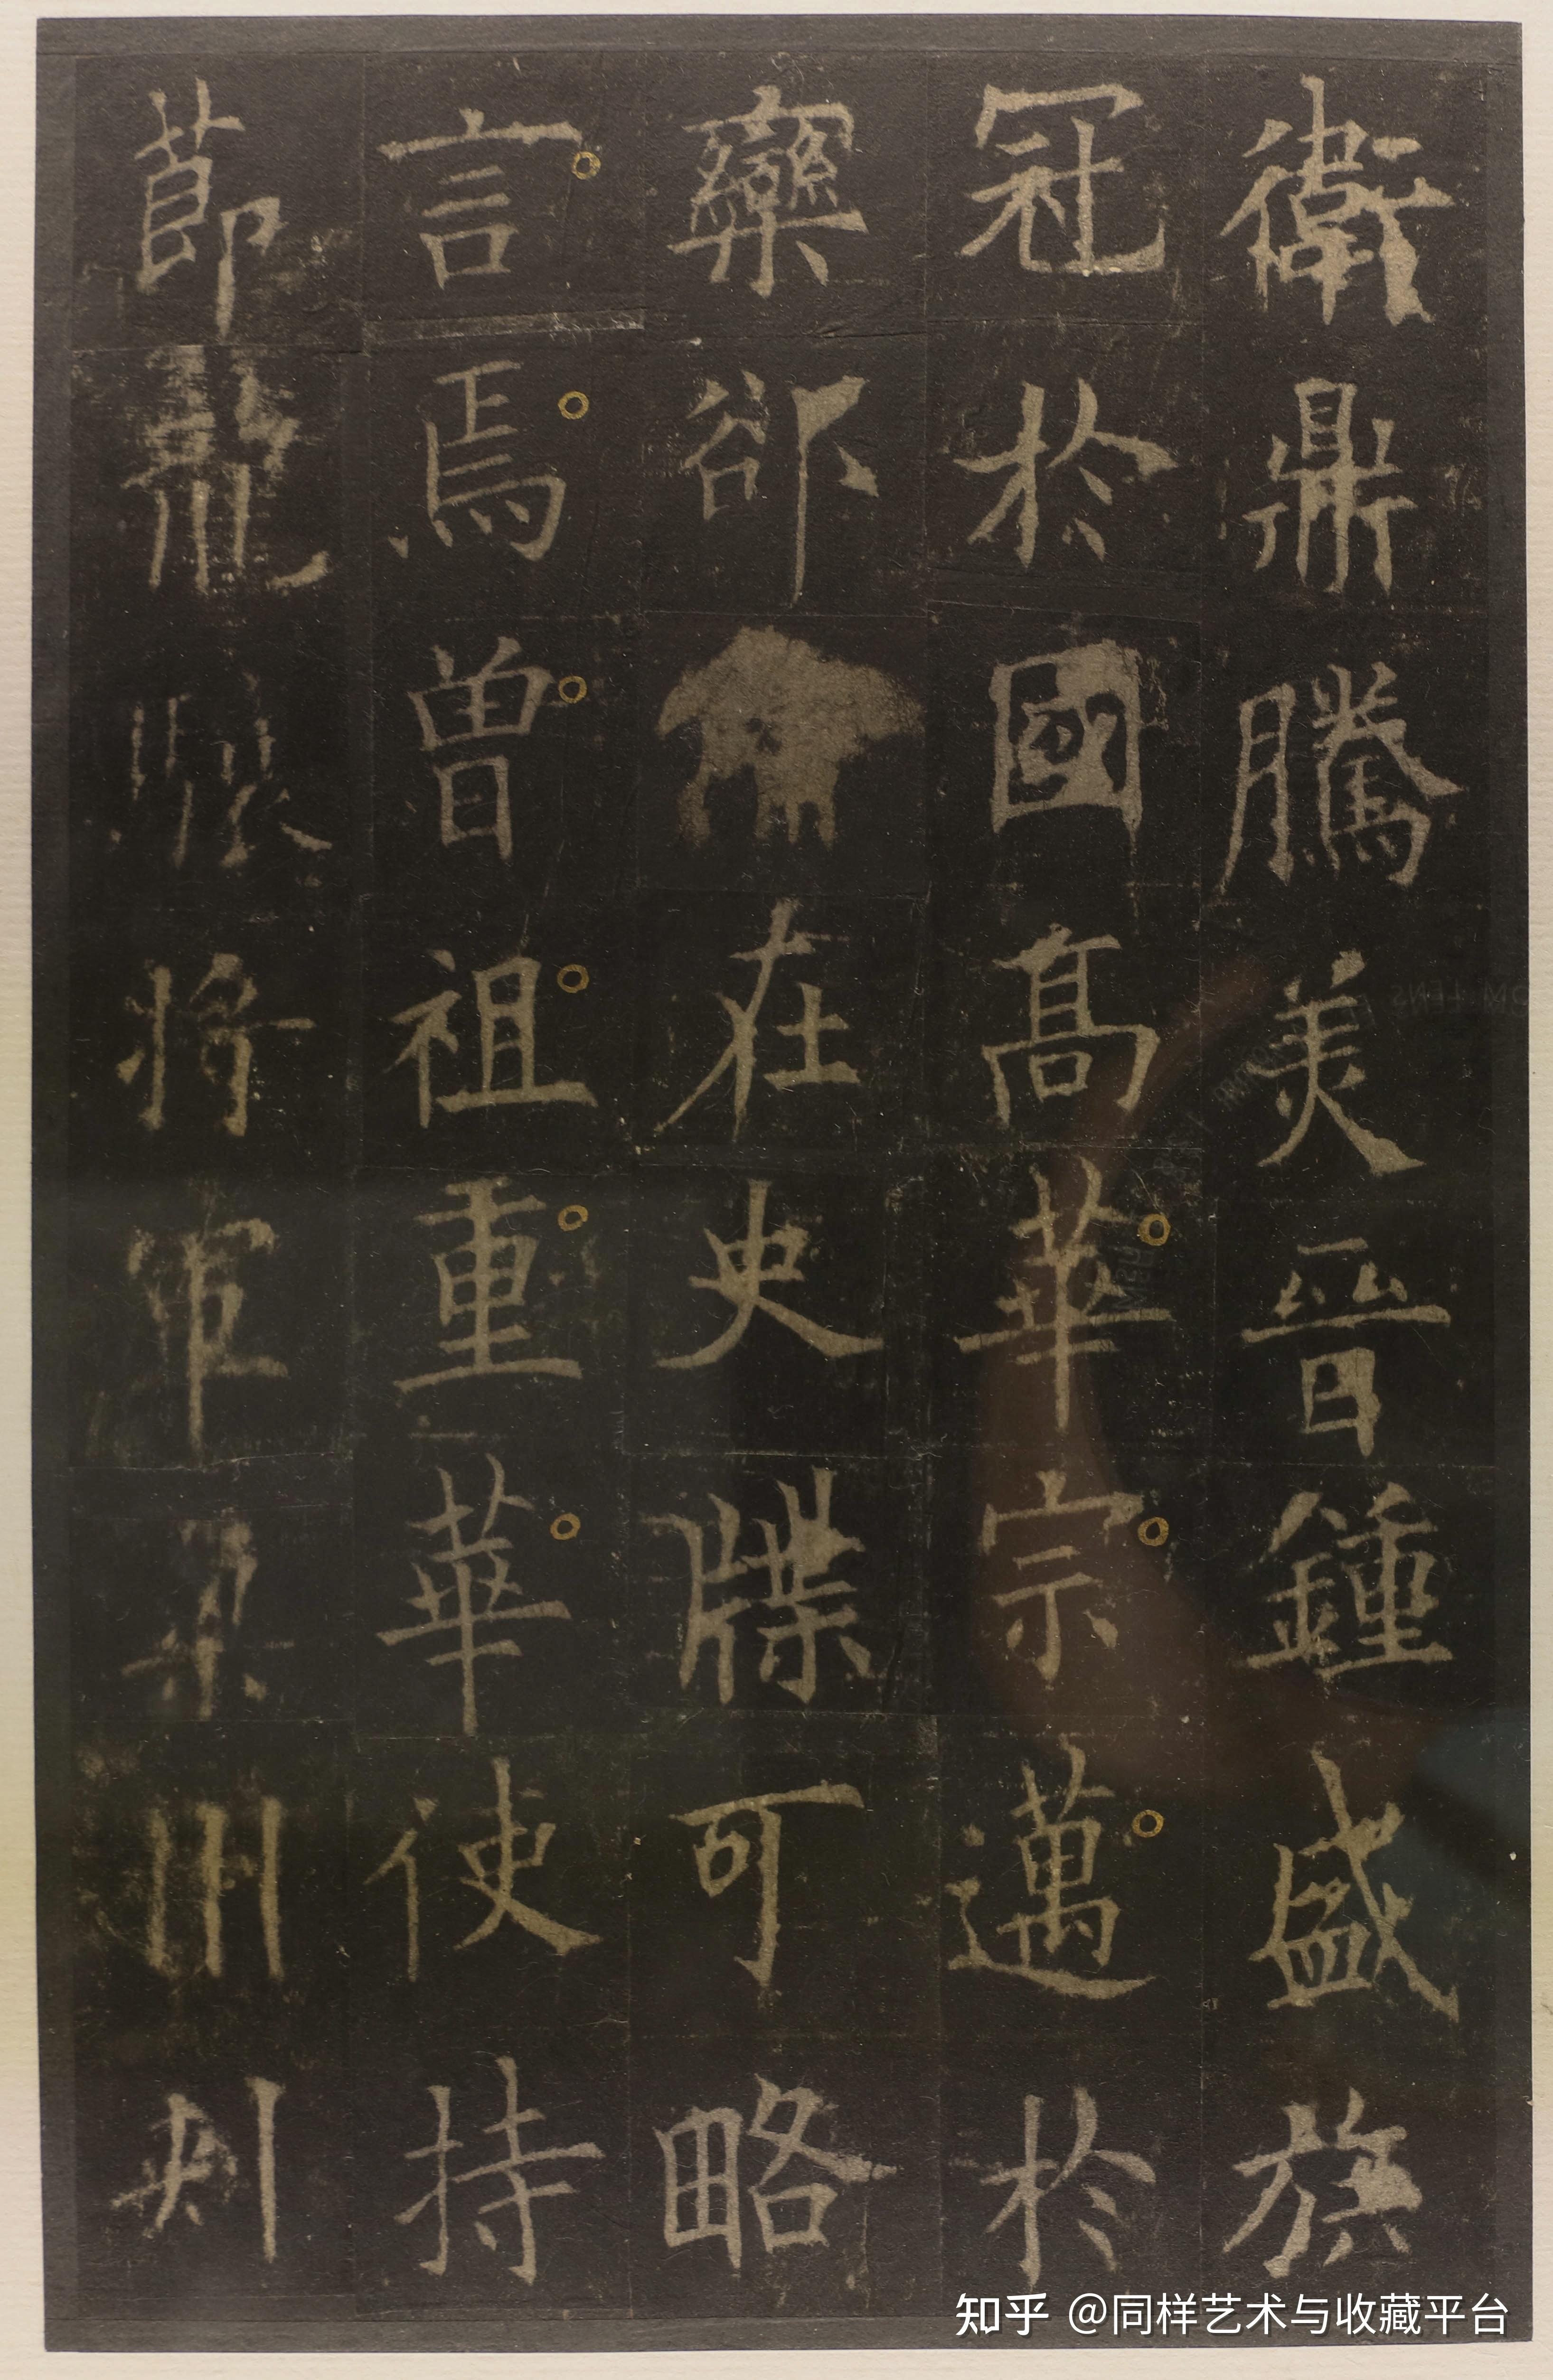 衛鼎騰美晉鍾盛族
冠於國高華宗邁於
欒郤在史牒可略
言焉曾祖重華使持
節龍驤將軍梁州刺
知乎 @同样艺术与收藏平台